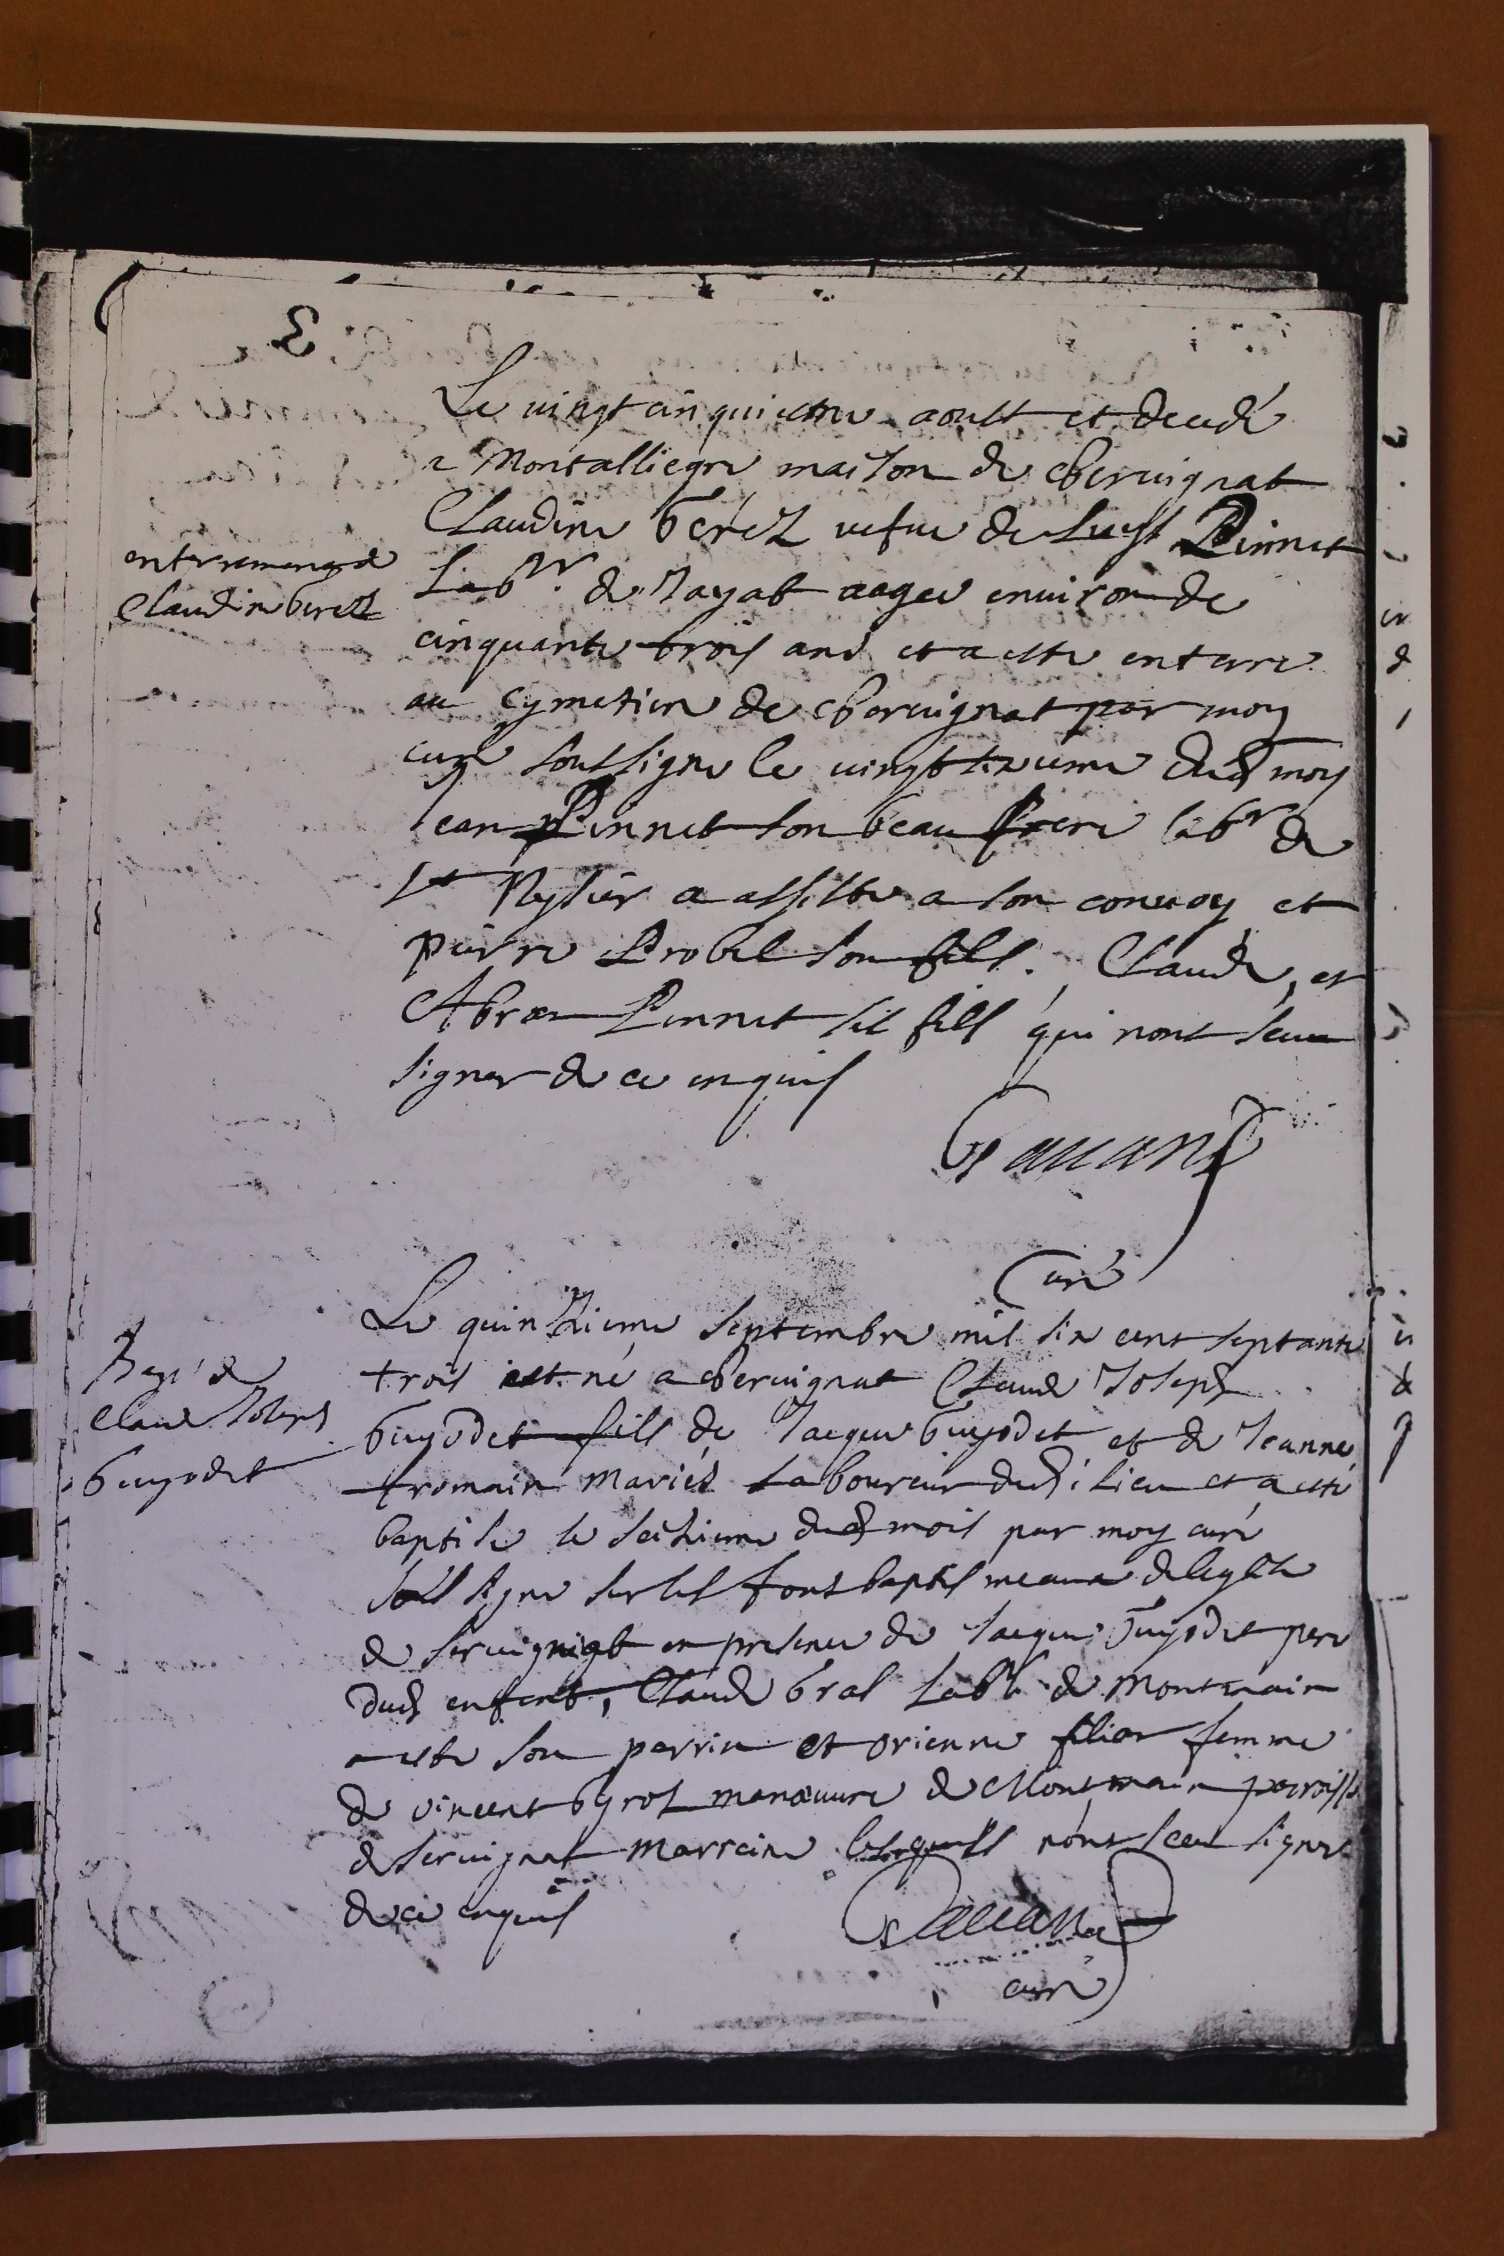 Le vingt cinquiesme aoust et decedé
a Montalliegre maison de chervignat
Claudine berez vefve de Pinnet
enterrement de
Claudine berez
Lab^r. de Jayat aagee environ de
cinquante trois ans et a este enterre
au cymetiere de chervignat par moy
curé soussigne le vingt sixieme dud moy
Jean Pinnet son beau frere lab^r de
St a assiste a son convoy et
pierre Probel son fils. Claude, et
Abram Pinnet sés fils qui nont sceu
signer de ce enquis
Gavand
Curé
Le quinzieme septembre mil six cent septante
trois est né a chervignat Claude Joseph
Bap^t de
Claude Joseph
Guyodet
Guyodet fils de Jaque Guyodet et de Jeanne
tromain mariés laboureur dud lieu et a esté
baptisé le seizieme dud mois par moy curé
soussigne sur les fonts baptismeaux de leglise
de servignat en presence de Jaque Guyodet pere
dud enfent, Claude Gras Lab^r de Montmain
a este son parrin et orienne femme
de vincent manœuvre de Montmain parroisse
de servignat marraine lesquels nont sceu signer
de ce enquis
Gavand
curé